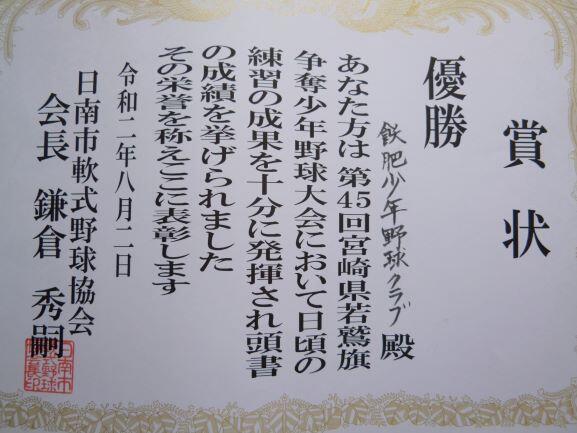 賞状
優勝
飫肥少年野球クラブ 殿
あなた方は 第45回宮崎県若鷲旗
争奪少年野球大会において日頃の
練習の成果を十分に発揮され頭書
の成績を挙げられました
その栄誉を称えここに表彰します
令和二年八月二日
日南市軟式野球協会
会長 鎌倉 秀嗣